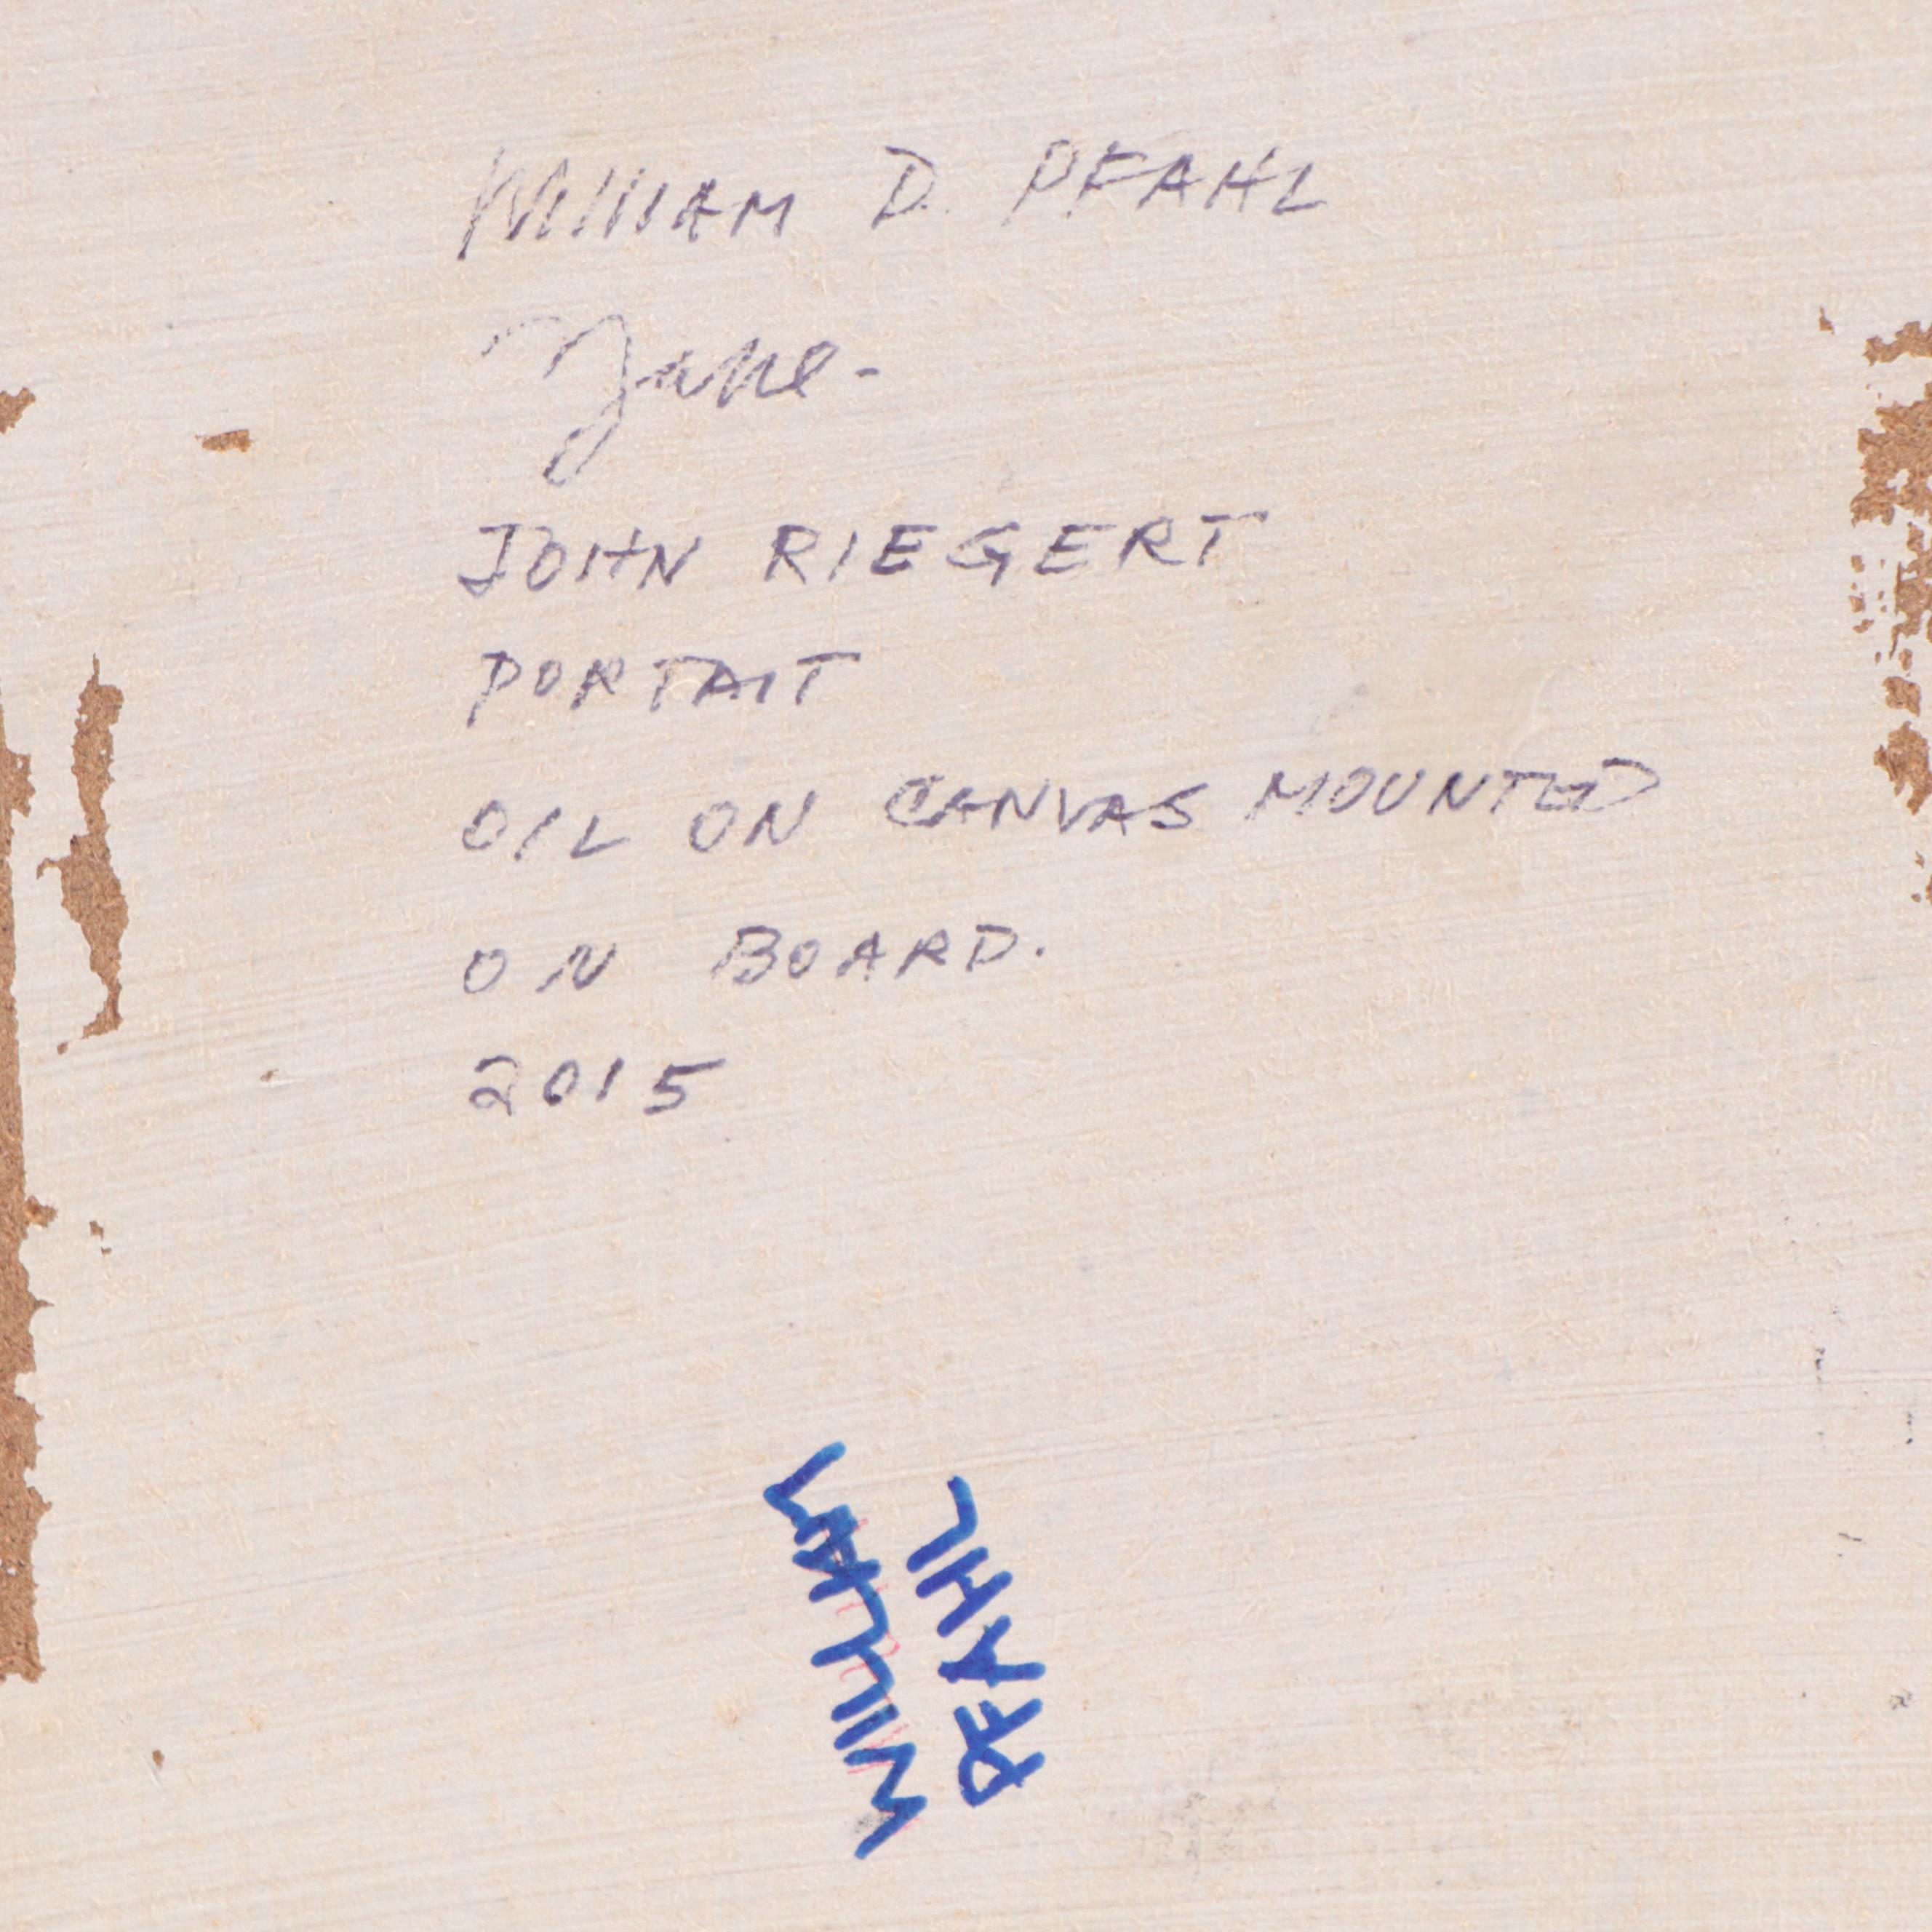 WILLIAM D. PFAHL
June-
JOHN RIEGERT
PORTAIT
OIL ON CANVAS MOUNTED
ON BOARD.
2015
WILLIAM
PFAHL